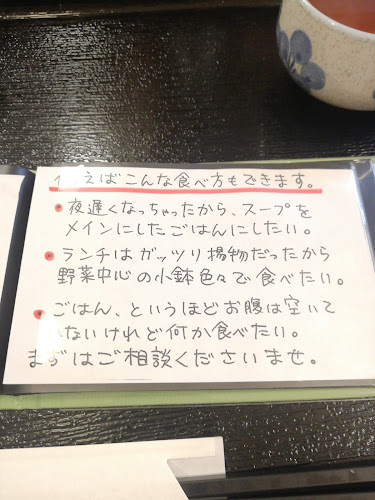 例えばこんな食べ方もできます。
・夜遅くなっちゃったから、スープを
メインにしたごはんにしたい。
・ランチはガッツリ揚物だったから
野菜中心の小鉢色々で食べたい。
・ごはん、というほどお腹は空いて
いないけれど何か食べたい。
まずはご相談くださいませ。